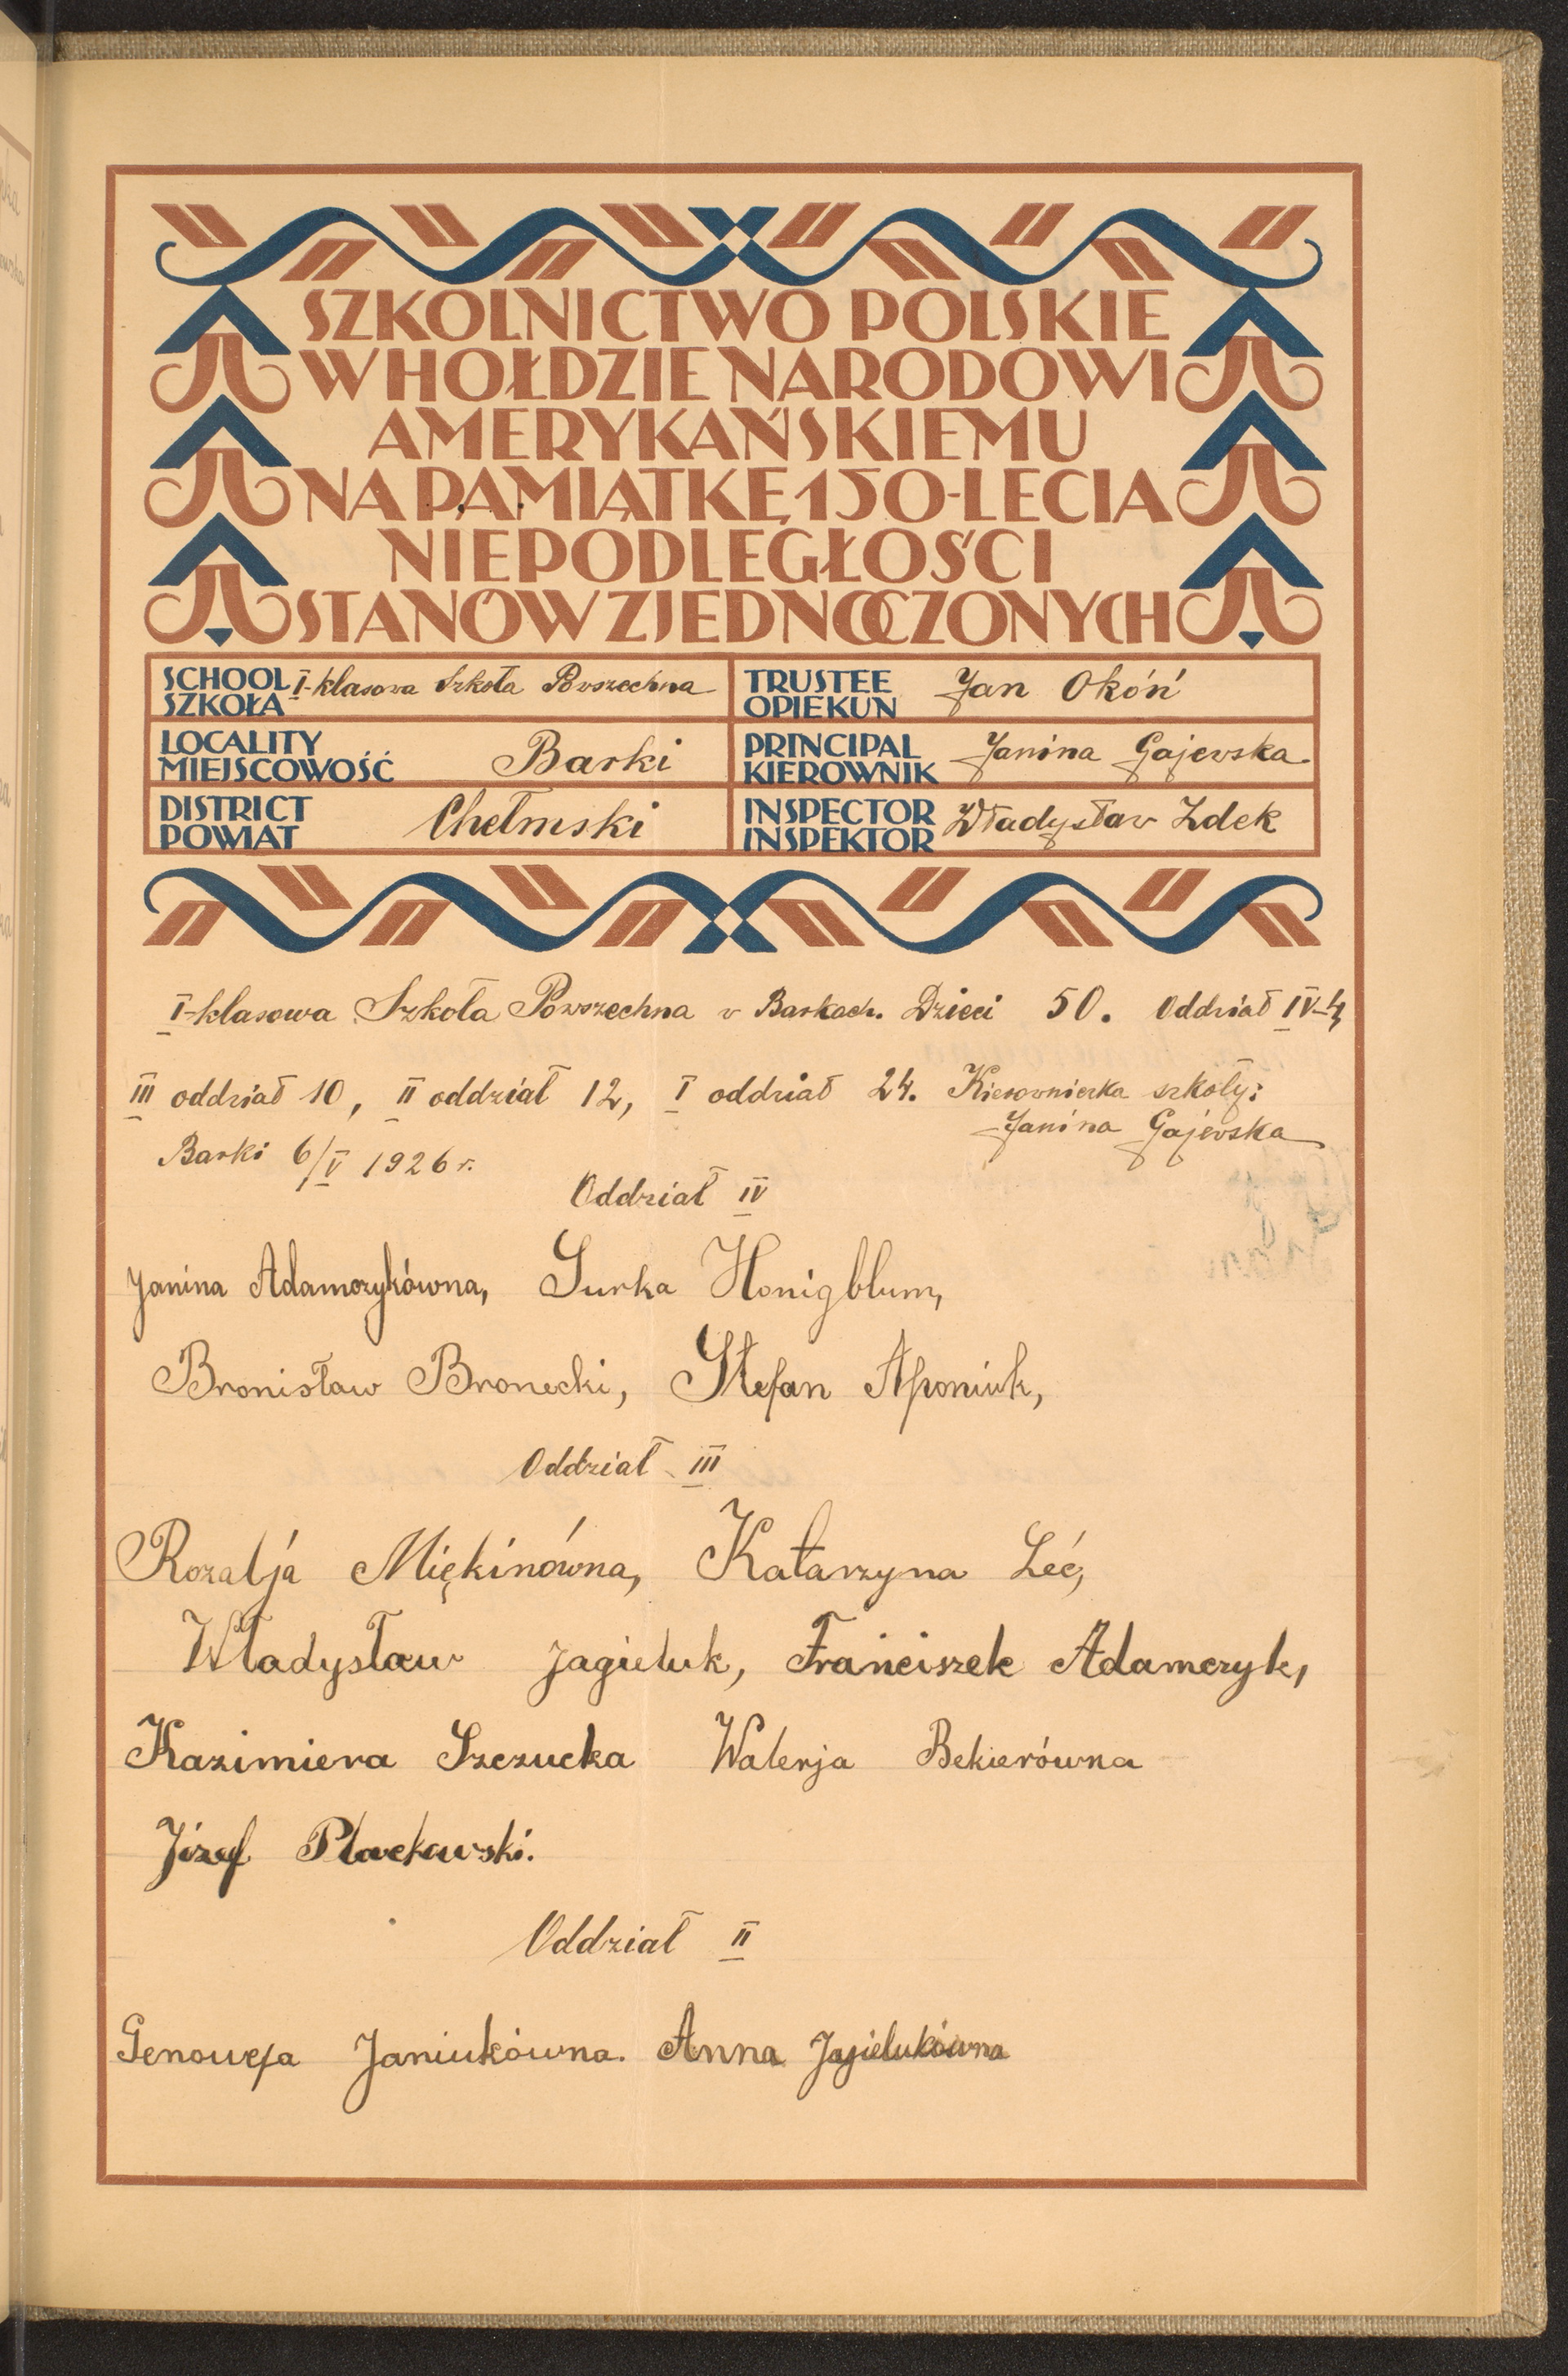 SZKOLNICTWO POLSKIE
W HOŁDZIE NARODOWI
AMERYKAŃSKIEMU
NA PAMIĄTKĘ 150-LECIA
NIEPODLEGŁOŚCI
STANÓW ZJEDNOCZONYCH
SCHOOL SZKOŁA I-klasowa Szkoła Powszechna
TRUSTEE OPIEKUN Jan Okóń
LOCALITY MIEJSCOWOŚĆ Barki
PRINCIPAL KIEROWNIK Janina Gajewska
DISTRICT POWIAT Chełmski
INSPECTOR INSPEKTOR Władysław Zdek
I-klasowa Szkoła Powszechna w Barkach. Dzieci 50. Oddział IV-4,
III oddział 10, II oddział 12, I oddział 24. Kierowniczka szkoły:
Janina Gajewska
Barki 6/V 1926 r.
Oddział IV
Janina Adamczykówna, Surka Honigblum,
Bronisław Bronecki, Stefan Aponiuk,
Oddział III
Rozalja Miękinówna, Katarzyna Leć,
Władysław Jagieluk, Franciszek Adamczyk,
Kazimiera Szczucka Walerja Bekierówna
Józef Plackowski.
Oddział II
Genowefa Janiukówna. Anna Jagielukówna